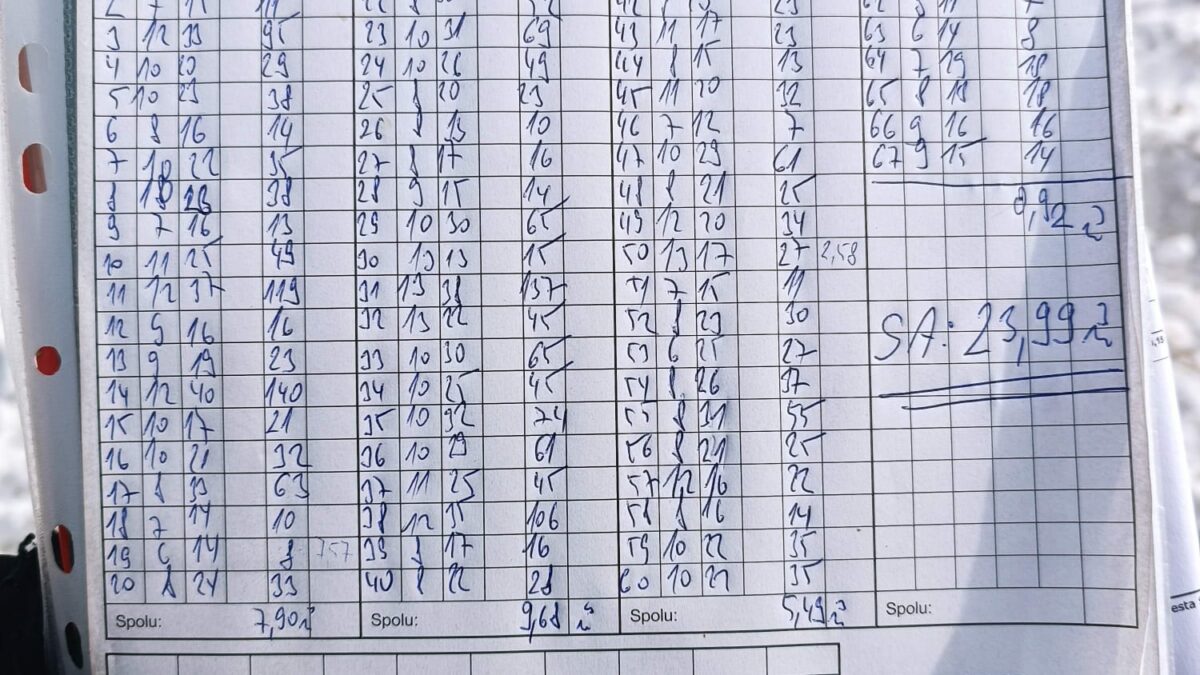 3 12 33 95 23 10 31 69 43 11 17 23 63 6 14 8
4 10 20 29 24 10 26 49 44 8 15 13 64 7 19 18
5 10 23 38 25 8 20 23 45 11 20 32 65 8 18 18
6 8 16 14 26 8 13 10 46 7 12 7 66 9 16 16
7 10 22 35 27 8 17 16 47 10 29 61 67 9 15 14
8 10 23 38 28 9 15 14 48 8 21 25
9 7 16 13 29 10 30 65 49 12 20 34
10 11 25 49 30 13 13 15 50 13 17 27 2,58
11 12 37 119 31 13 38 137 51 7 15 11
12 9 16 16 32 13 22 45 52 8 23 30
SA: 23,99
13 9 19 23 33 10 30 65 53 6 25 27
14 12 40 140 34 10 25 45 54 8 26 37
15 10 17 21 35 10 32 74 55 8 31 55
16 10 21 32 36 10 29 61 56 8 21 25
17 8 33 63 37 11 25 45 57 12 16 22
18 7 14 10 38 12 35 106 58 8 16 14
19 6 14 8 757 39 8 17 16 59 10 22 35
20 8 24 33 40 8 22 28 60 10 22 35
Spolu: 7,90 Spolu: 9,68 Spolu: 5,49 Spolu:
esta